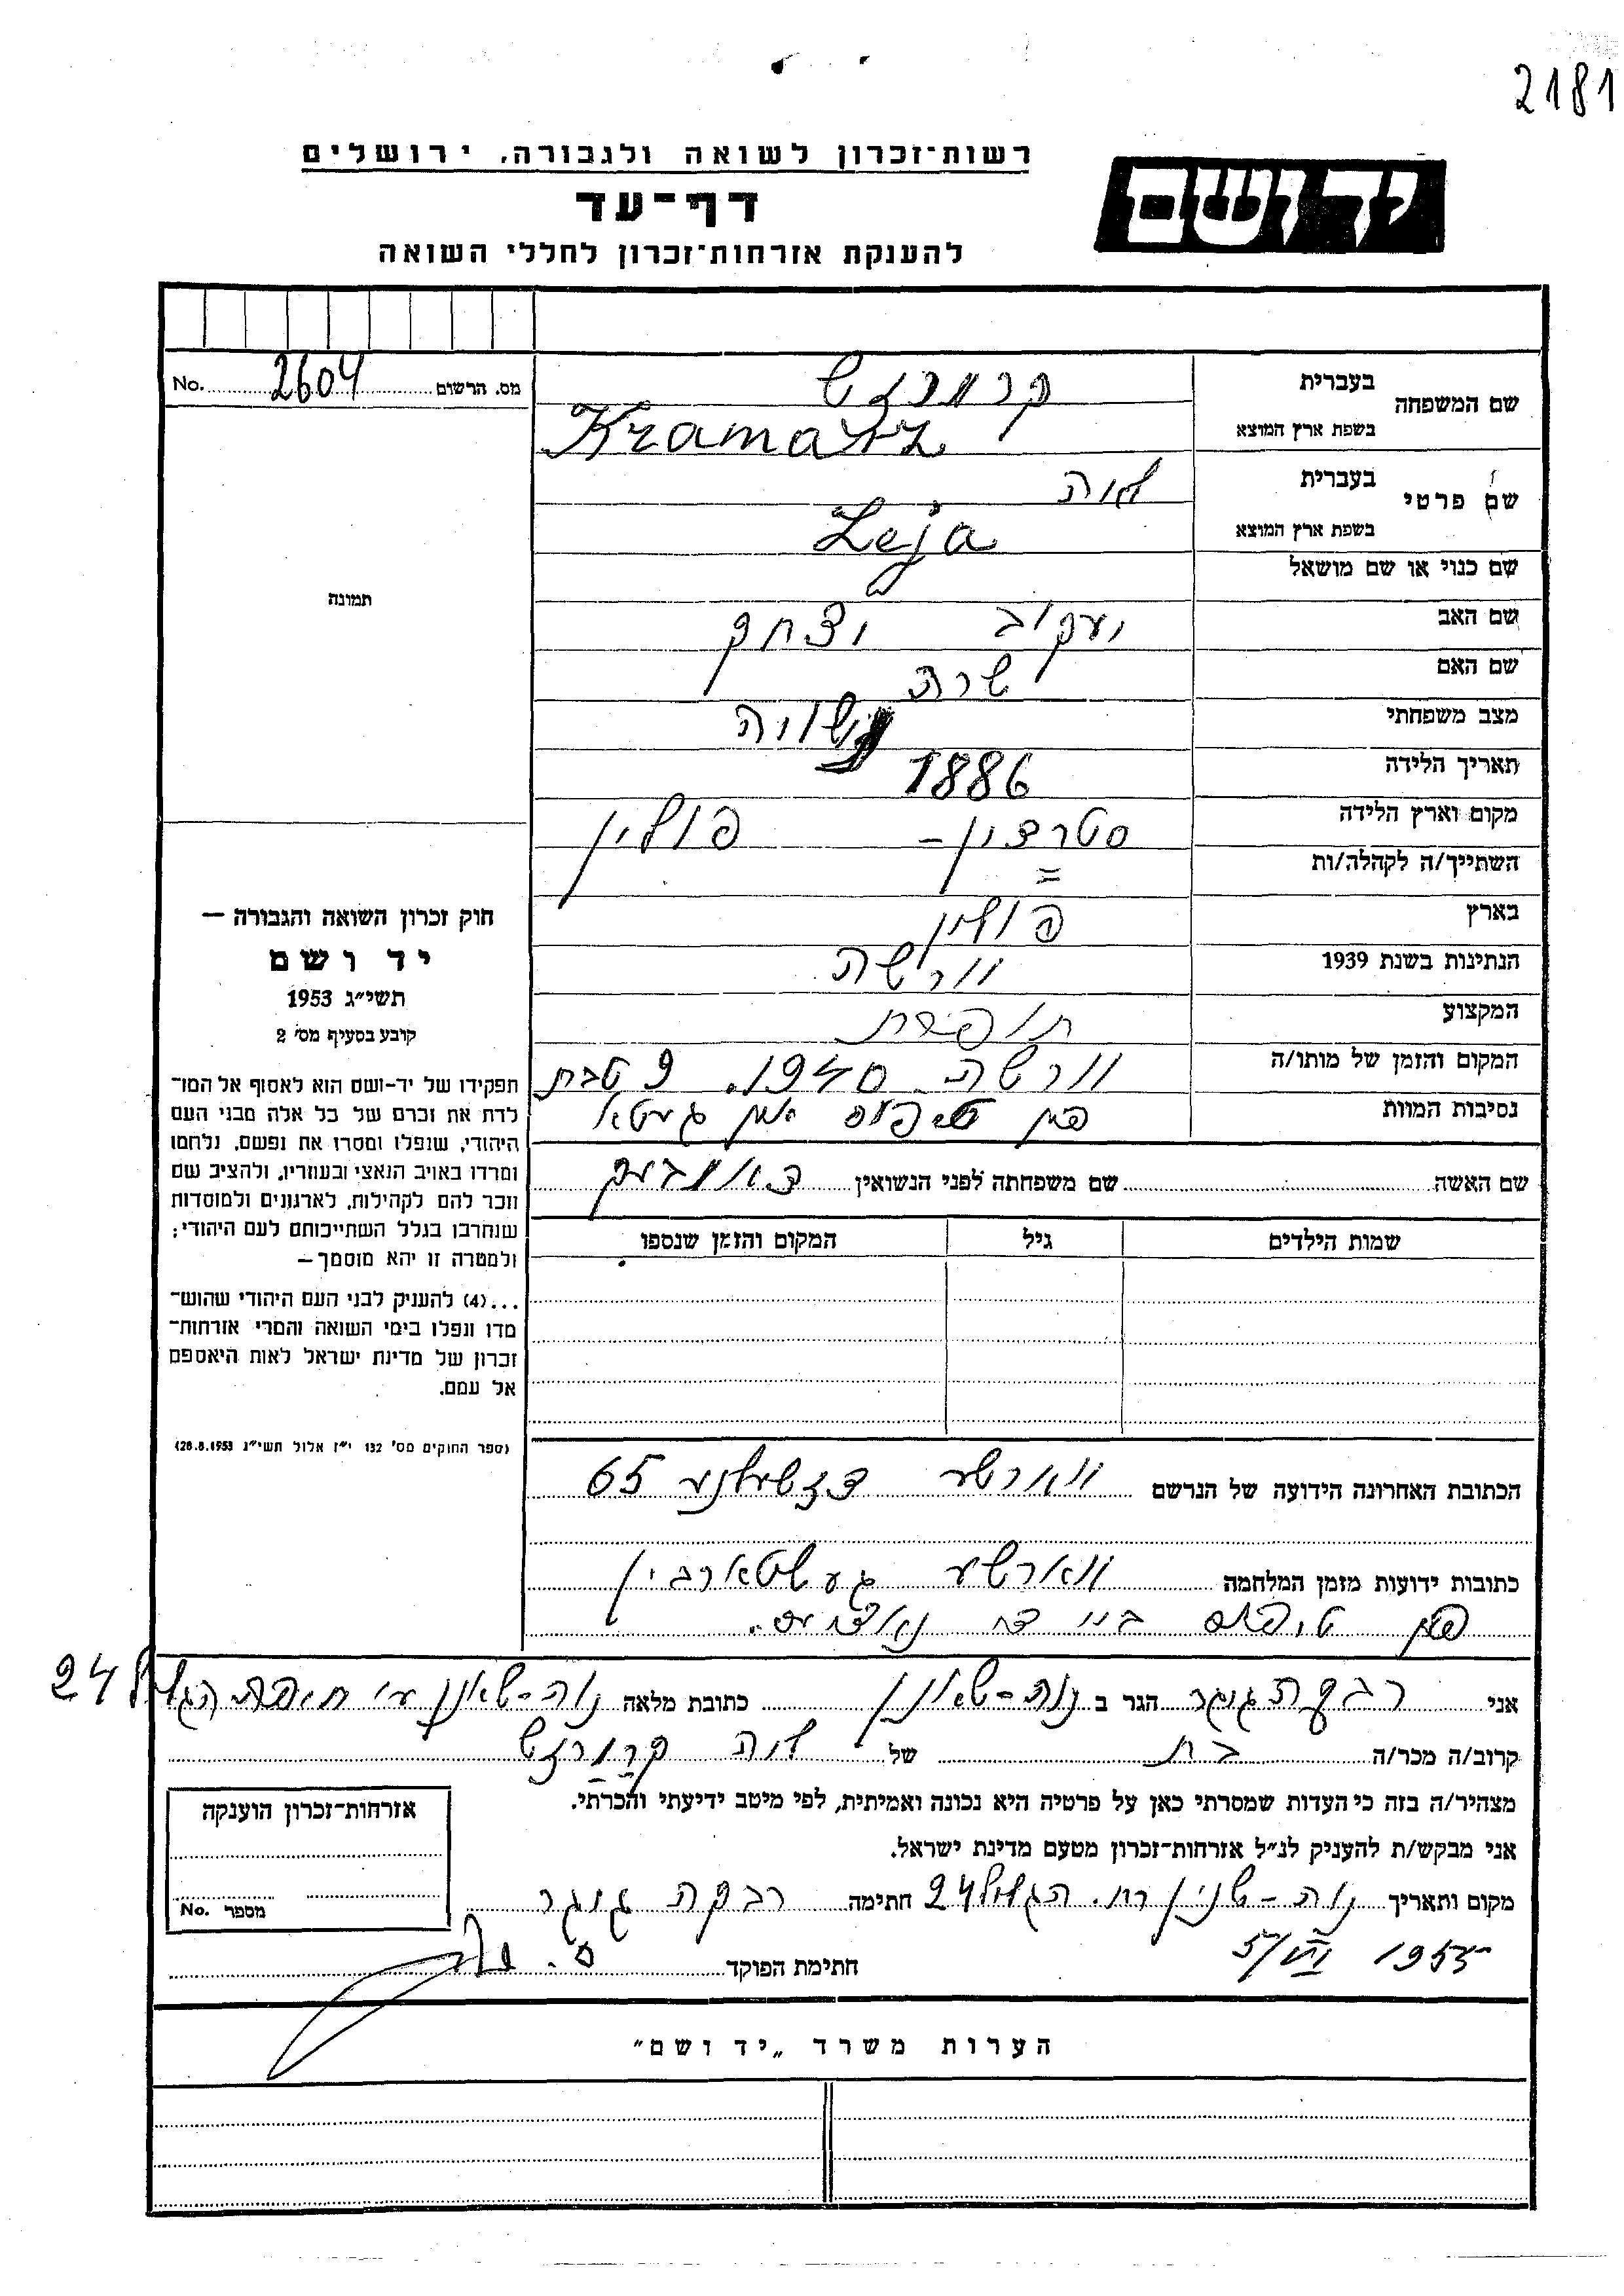 2181
רשות־זכרון לשואה ולגבורה, ירושלים
יד ושם
דף־עד
להענקת אזרחות־זכרון לחללי השואה
מס. הרשום 2604 No.
שם המשפחה
בעברית קרמרזש
בשפת ארץ המוצא Kramarz
שם פרטי
בעברית לאה
בשפת ארץ המוצא Leja
שם כנוי או שם מושאל
שם האב יעקוב יצחק
שם האם שרה
מצב משפחתי נשואה
תאריך הלידה 1886
מקום וארץ הלידה פולין
השתייך/ה לקהלה/ות =
בארץ פולין
הנתינות בשנת 1939 וורשה
המקצוע תופרת
המקום והזמן של מותו/ה וורשה 1940. 9 טבת
נסיבות המוות פון טיפוס אין געטא
שם האשה שם משפחתה לפני הנשואין
שמות הילדים גיל המקום והזמן שנספו
תמונה
חוק זכרון השואה והגבורה —
יד ושם
תשי״ג 1953
קובע בסעיף מס׳ 2
תפקידו של יד־ושם הוא לאסוף אל המו־
לדת את זכרם של כל אלה מבני העם
היהודי, שנפלו ומסרו את נפשם, נלחמו
ומרדו באויב הנאצי ובעוזריו, ולהציב שם
וזכר להם לקהילות, לארגונים ולמוסדות
שנחרבו בגלל השתייכותם לעם היהודי;
ולמטרה זו יהא מוסמך —
...(4) להעניק לבני העם היהודי שהוש־
מדו ונפלו בימי השואה והמרי אזרחות־
זכרון של מדינת ישראל לאות היאספם
אל עמם.
(ספר החוקים מס׳ 132 י״ז אלול תשי״ג 28.8.1953)
הכתובת האחרונה הידועה של הנרשם ווארשע דזשעלנע 65
כתובות ידועות מזמן המלחמה ווארשע געשטארבין
פון טיפוס ביי
אני רבקה גוגר הגר ב נוה-שאנן כתובת מלאה נוה-שאנן ע״י חיפה הגליל 24
קרוב/ה מכר/ה בת של לאה קרמרזש
מצהיר/ה בזה כי העדות שמסרתי כאן על פרטיה היא נכונה ואמיתית, לפי מיטב ידיעתי והכרתי.
אני מבקש/ת להעניק לנ״ל אזרחות־זכרון מטעם מדינת ישראל.
מקום ותאריך נוה-שאנן רח. הגליל 24 חתימה רבקה גוגר
חתימת הפוקד
אזרחות־זכרון הוענקה
מספר No.
הערות משרד „יד ושם״